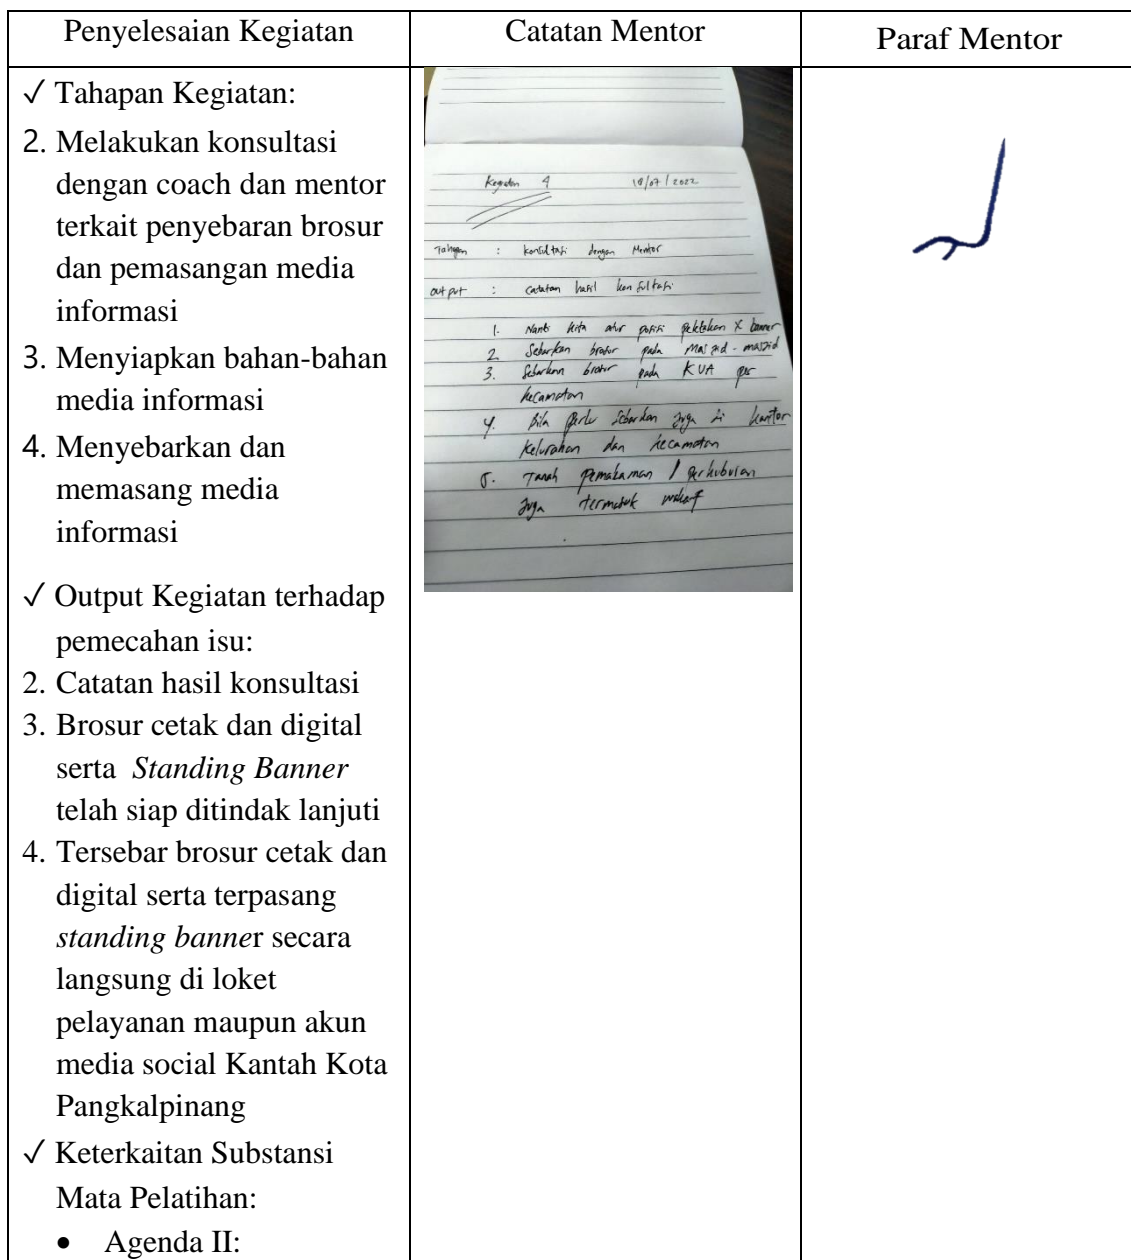 Penyelesaian Kegiatan
Catatan Mentor
Paraf Mentor
✓ Tahapan Kegiatan:
2. Melakukan konsultasi
dengan coach dan mentor
terkait penyebaran brosur
dan pemasangan media
informasi
3. Menyiapkan bahan-bahan
media informasi
4. Menyebarkan dan
memasang media
informasi
✓ Output Kegiatan terhadap
pemecahan isu:
2. Catatan hasil konsultasi
3. Brosur cetak dan digital
serta Standing Banner
telah siap ditindak lanjuti
4. Tersebar brosur cetak dan
digital serta terpasang
standing banner secara
langsung di loket
pelayanan maupun akun
media social Kantah Kota
Pangkalpinang
✓ Keterkaitan Substansi
Mata Pelatihan:
• Agenda II:
Kegiatan 4
/07/2022
Tahapan : Konsultasi dengan Mentor
Output : Catatan hasil konsultasi
1. Nanti kita atur posisi peletakan X banner
2. Sebarkan brosur pada Masjid - masjid
3. Sebarkan brosur pada KUA per
kecamatan
4. Bila perlu sebarkan juga di kantor
kelurahan dan kecamatan
5. Tanah pemakaman / perkuburan
juga termasuk wakaf